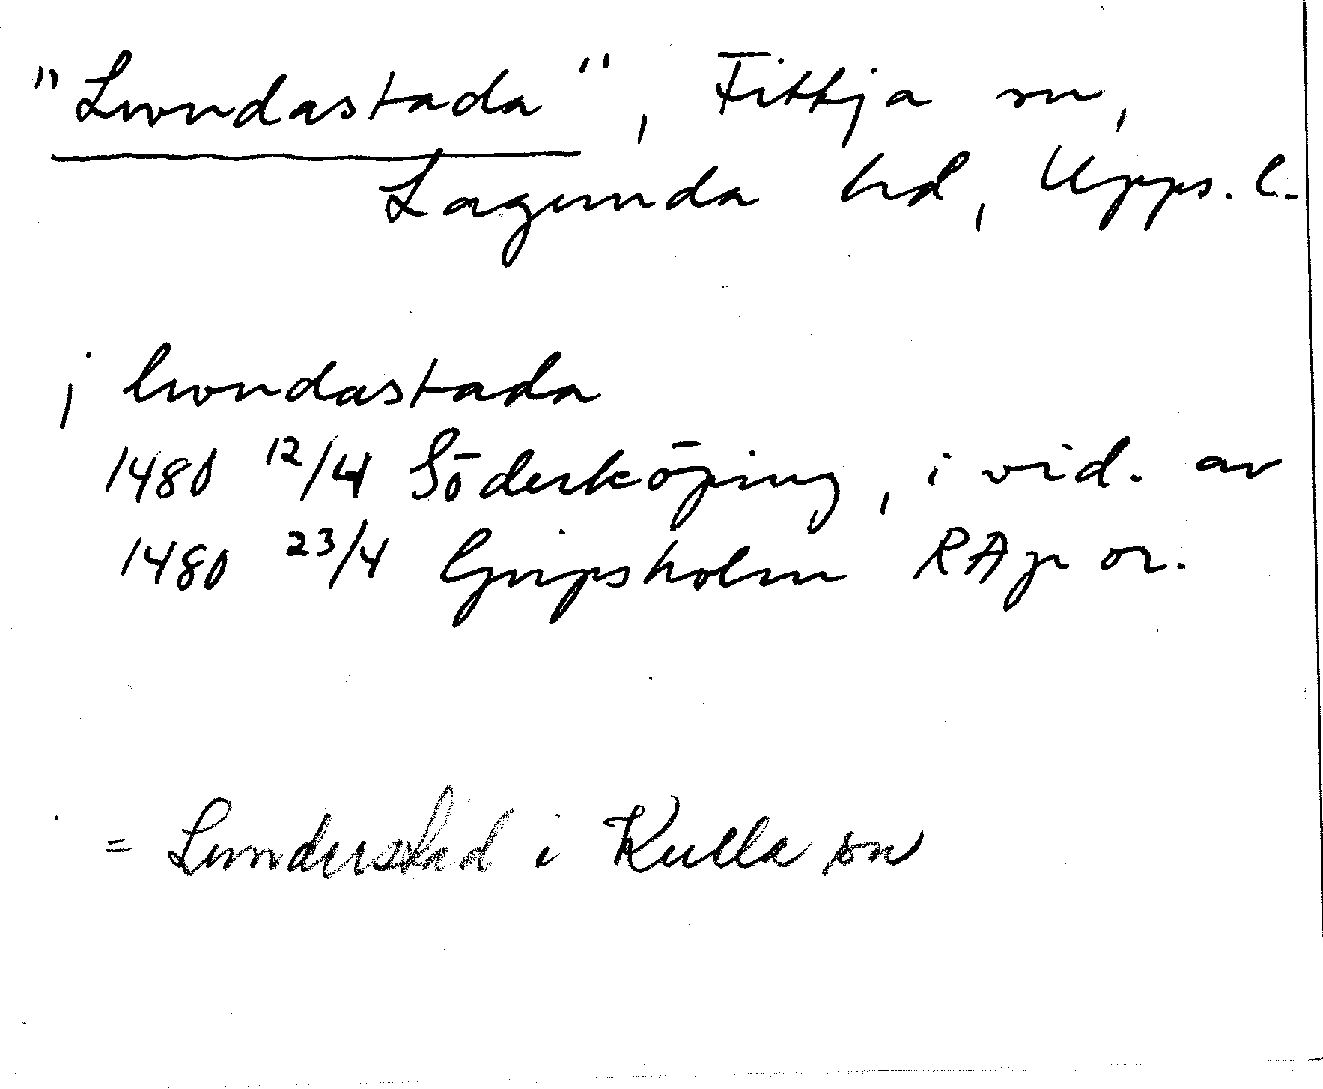 "Lwndastada", Fittja sn,
Lagunda hd, Upps. l.
j lwndastada
1480 12/4 Söderköping, i vid. av
1480 23/4 Gripsholm RAp or.
= Lunderstad i Kulla sn